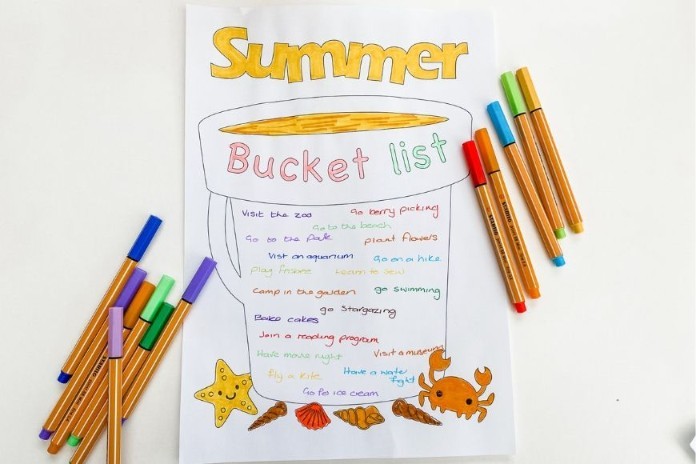 Summer
Bucket list
Visit the zoo
Go berry picking
Go to the beach
Go to the Park
plant flowers
Visit an aquarium
Go on a hike
play frisbee
Learn to sew
Camp in the garden
go swimming
go Stargazing
Bake cakes
Join a reading program
Have movie night
Visit a museum
Fly a kite
Have a water
fight
Go for ice cream